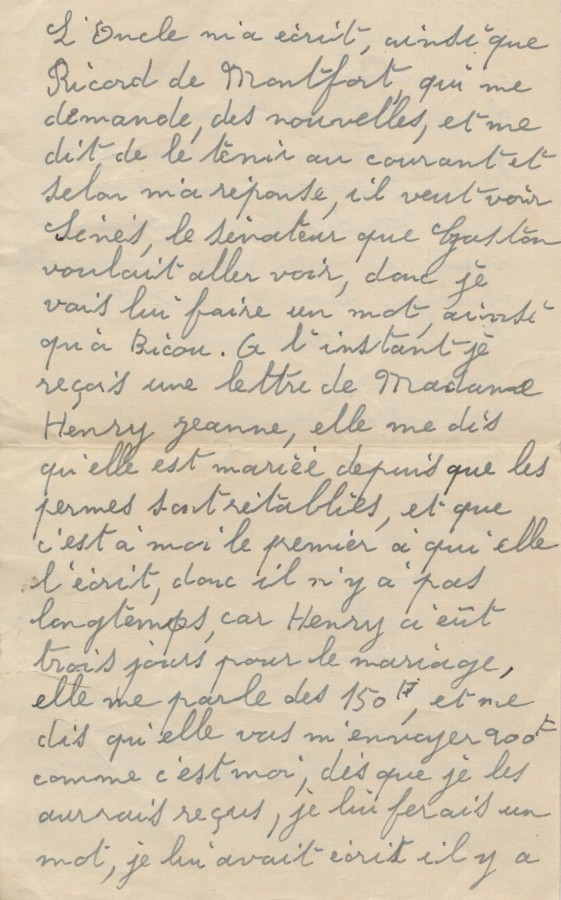 L'Oncle m'a écrit, ainsi que
Ricord de Montfort, qui me
demande, des nouvelles, et me
dit de le tenir au courant et
selon m'a réponse, il veut voir
Sénés, le sénateur que Gaston
voulait aller voir, donc je
vais lui faire un mot, ainsi
qu'à Bicou. A l'instant je
reçois une lettre de Madame
Henry Jeanne, elle me dis
qu'elle est mariée depuis que les
permes sont rétablies, et que
c'est à moi le premier à qui elle
l'écrit, donc il n'y a pas
longtemps, car Henry a eût
trois jours pour le mariage,
elle me parle des 150 F, et me
dis qu'elle vas m'envoyer 200 F
comme c'est moi, dès que je les
aurrais reçus, je lui ferais un
mot, je lui avait écrit il y a